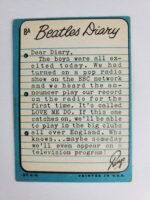 8A
Beatles Diary
Dear Diary,
The boys were all ex-
cited today. We had
turned on a pop radio
show on the BBC network
and we heard the an-
nouncer play our record
on the radio for the
first time. It's called
LOVE ME DO. If this one
catches on, we'll be able
to play in the big clubs
all over England. Who
knows...maybe someday
we'll even appear on a
television program!
PRINTED IN U.S.A.